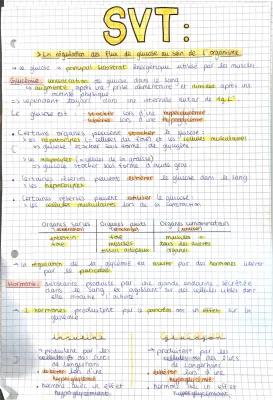 SVT:
> La régulation des flux de glucose au sein de l'organisme
→ le glucose = principal substrat énergétique utilisé par les muscles.
Glycémie: concentration de glucose dans le sang
→ augmente après une prise alimentaire et diminue après une
activité physique
=> cependant toujours dans un intervalle autour de 1g.L⁻¹
Le glucose est stocké lors d'une hyperglycémie
libéré lors d'une hypoglycémie
• Certains organes peuvent stocker le glucose:
> les hépatocytes (cellules du foie) et les cellules musculaires
→ glucose stocké sous forme de glycogène
> les adipocytes (= cellules de la graisse)
→ glucose stocké sous forme d'acide gras
• Certaines réserves peuvent libérer le glucose dans le sang
> les hépatocytes
• Certaines réserves peuvent utiliser le glucose:
> les cellules musculaires lors de la contraction
Organes sources
Organes puits
Organes consommateurs
intestin
foie
foie
muscles
tissus adipeux
muscles
tous les autres
organes
→ la régulation de la glycémie est assurée par des hormones libérées
par le pancréas
Hormone: substance produite par une glande endocrine sécrétée
dans le sang et agissant sur des cellules cibles dont
elle modifie l'activité.
2 hormones produites par le pancréas ont un effet sur la
glycémie
insuline
glucagon
→ produite par les
cellules β des îlots
de Langerhans
→ produit par les
cellules α des îlots
de Langerhans
• libérée lors d'une
hyperglycémie
• libéré lors d'une
hypoglycémie
• hormone avec un effet
hypoglycémiant
• hormone avec un effet
hyperglycémiant